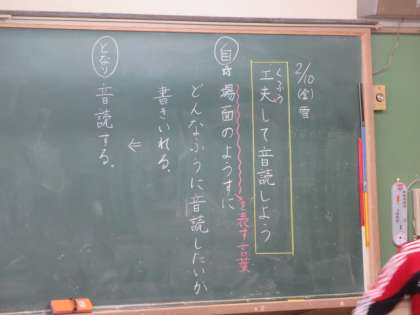 2/10(金)雪
くふう
工夫して音読しよう
自☆場面のようすを表す言葉に
どんなふうに音読したいか
書きいれる。
⇐
となり 音読する。